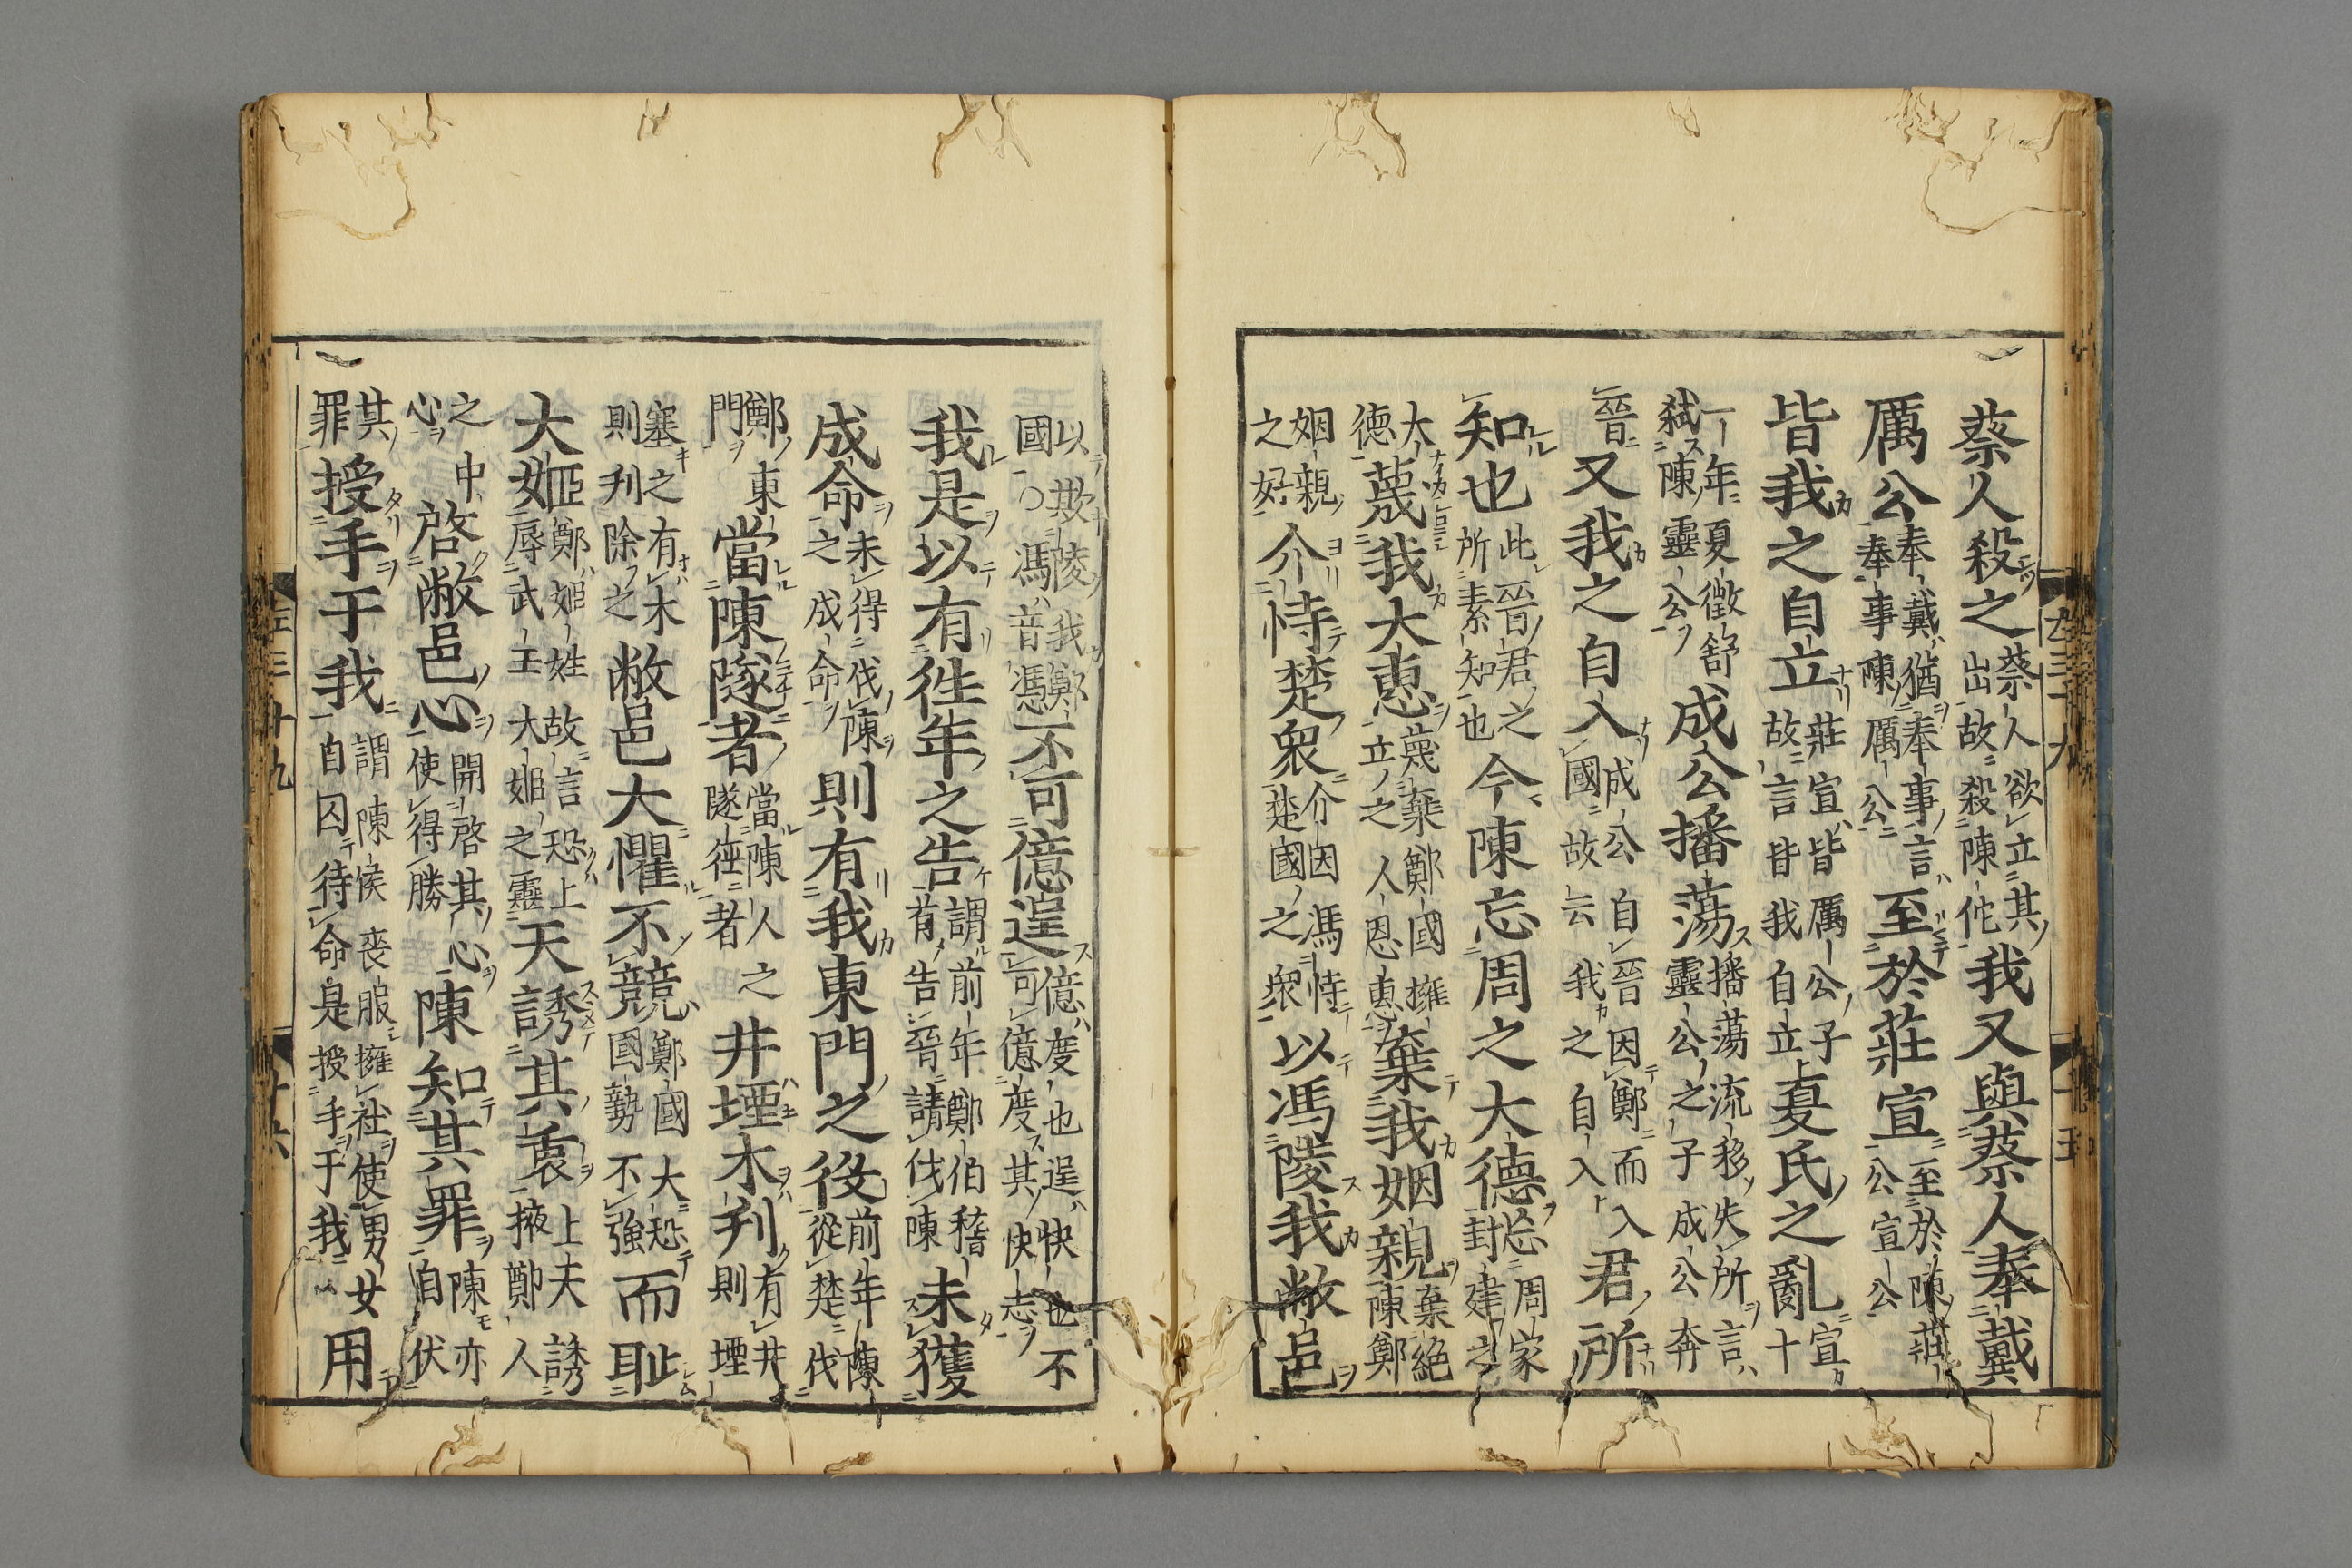 蔡人殺之蔡人欲立其出故殺陳佗我又與蔡人奉戴
厲公奉戴猶奉事言奉事陳厲公至於莊宣至於陳莊公宣公
皆我之自立莊宣皆厲公子故言皆我自立夏氏之亂宣十
一年夏徵舒弑陳靈公成公播蕩播蕩流移失所言靈公之子成公奔
晉又我之自入成公自晉因鄭而入國故云我之自入君所
知也此晉君之所素知也今陳忘周之大德忘周家封建之
大德蔑我大惠蔑棄鄭國擁立之人恩惠棄我姻親棄絕陳鄭
姻親之好介恃楚衆介因馮恃楚國之衆以馮陵我敝邑
以欺陵我鄭國○馮音憑不可億逞億度也逞快也不可億度其快志
我是以有徃年之告謂前年鄭伯稽首告晉請伐陳未獲
成命未得伐陳之成命則有我東門之役前年陳從楚伐
鄭東門當陳隧者當陳人之隧徑者井堙木刋有井則堙
塞之有木則刋除之敝邑大懼不競鄭國大恐國勢不強而恥
大姬鄭姬姓故言恐上辱武王大姬之靈天誘其衷上天誘掖鄭人
之中心啓敝邑心開啓其心使得勝陳知其罪陳亦自伏
其罪授手于我謂陳侯喪服擁社使男女自囚待命是授手于我用